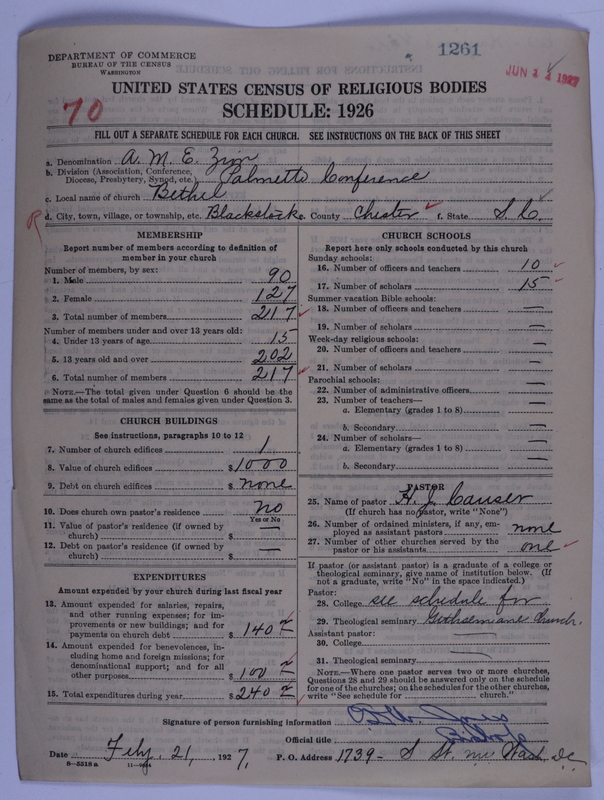 DEPARTMENT OF COMMERCE
BUREAU OF THE CENSUS
WASHINGTON
1261
JUN 1927
70
UNITED STATES CENSUS OF RELIGIOUS BODIES
SCHEDULE: 1926
FILL OUT A SEPARATE SCHEDULE FOR EACH CHURCH. SEE INSTRUCTIONS ON THE BACK OF THIS SHEET
a. Denomination A. M. E. Zion
b. Division (Association, Conference, Diocese, Presbytery, Synod, etc.) Palmetto Conference
c. Local name of church Bethel
R
d. City, town, village, or township, etc. Blackstock e. County Chester ✓ f. State S. C.
MEMBERSHIP
Report number of members according to definition of
member in your church
Number of members, by sex:
1. Male 90
2. Female 127
3. Total number of members 217 ✓
Number of members under and over 13 years old:
4. Under 13 years of age 15
5. 13 years old and over 202
6. Total number of members 217 ✓
NOTE.—The total given under Question 6 should be the
same as the total of males and females given under Question 3.
CHURCH BUILDINGS
See instructions, paragraphs 10 to 12
7. Number of church edifices 1
8. Value of church edifices $1000
9. Debt on church edifices $none
10. Does church own pastor's residence? No
Yes or No
11. Value of pastor's residence (if owned by
church) $—
12. Debt on pastor's residence (if owned by
church) $—
EXPENDITURES
Amount expended by your church during last fiscal year
13. Amount expended for salaries, repairs,
and other running expenses; for im-
provements or new buildings; and for
payments on church debt $140
14. Amount expended for benevolences, in-
cluding home and foreign missions; for
denominational support; and for all
other purposes $100
15. Total expenditures during year $240
CHURCH SCHOOLS
Report here only schools conducted by this church
Sunday schools:
16. Number of officers and teachers 10 ✓
17. Number of scholars 15 ✓
Summer vacation Bible schools:
18. Number of officers and teachers —
19. Number of scholars —
Week-day religious schools:
20. Number of officers and teachers —
21. Number of scholars —
Parochial schools:
22. Number of administrative officers —
23. Number of teachers—
a. Elementary (grades 1 to 8) —
b. Secondary —
24. Number of scholars—
a. Elementary (grades 1 to 8) —
b. Secondary —
PASTOR
25. Name of pastor H. J. Causer
(If church has no pastor, write "None")
26. Number of ordained ministers, if any, em-
ployed as assistant pastors none
27. Number of other churches served by the
pastor or his assistants one ✓
If pastor (or assistant pastor) is a graduate of a college or
theological seminary, give name of institution below. (If
not a graduate, write "No" in the space indicated.)
Pastor:
28. College see schedule for
29. Theological seminary Gethsemiane Church.
Assistant pastor:
30. College —
31. Theological seminary —
NOTE.—Where one pastor serves two or more churches,
Questions 28 and 29 should be answered only on the schedule
for one of the churches; on the schedules for the other churches,
write "See schedule for church."
Signature of person furnishing information Jones
Official title Bishop
Date Feby. 21, 1927. P. O. Address 1739- S St. NW Wash. D.C.
8—5518 a